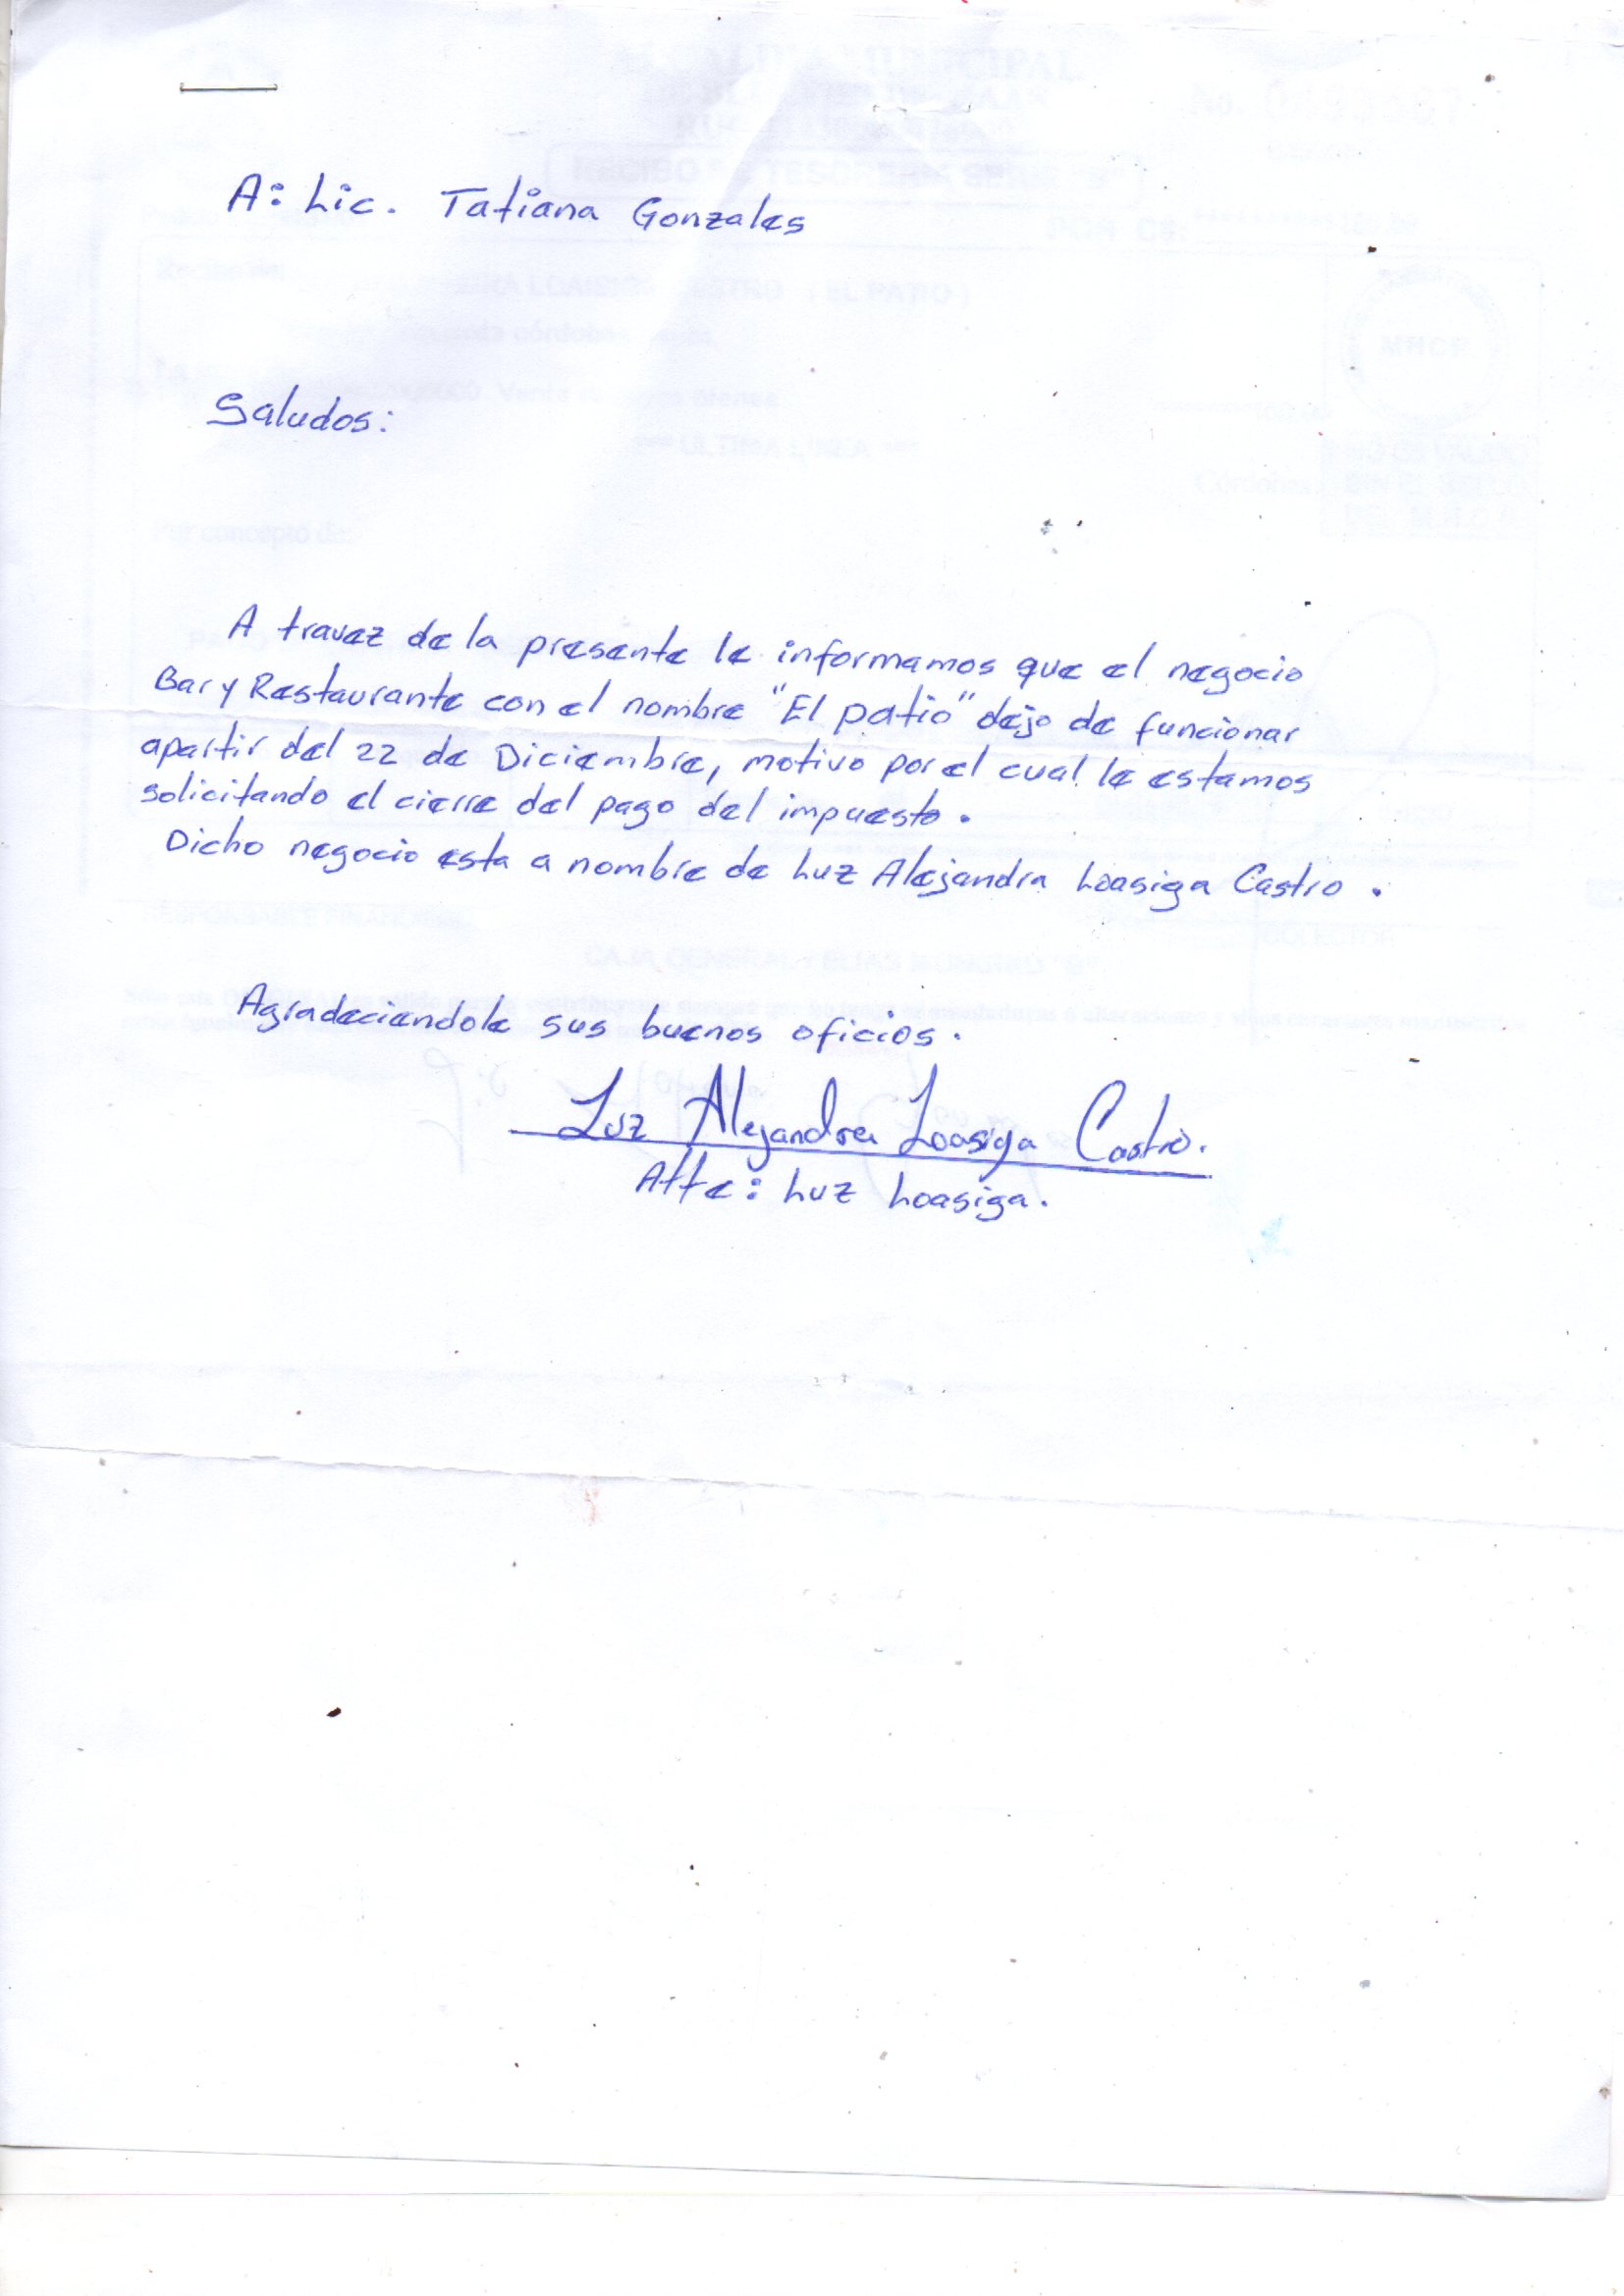 A: Lic. Tatiana Gonzales
Saludos:
A travez de la presente le informamos que el negocio
Bar y Restaurante con el nombre "El patio" dejo de funcionar
apartir del 22 de Diciembre, motivo por el cual le estamos
solicitando el cierre del pago del impuesto.
Dicho negocio esta a nombre de Luz Alejandra Loasiga Castro.
Agradeciendole sus buenos oficios.
Luz Alejandra Loasiga Castro.
Atte: Luz Loasiga.